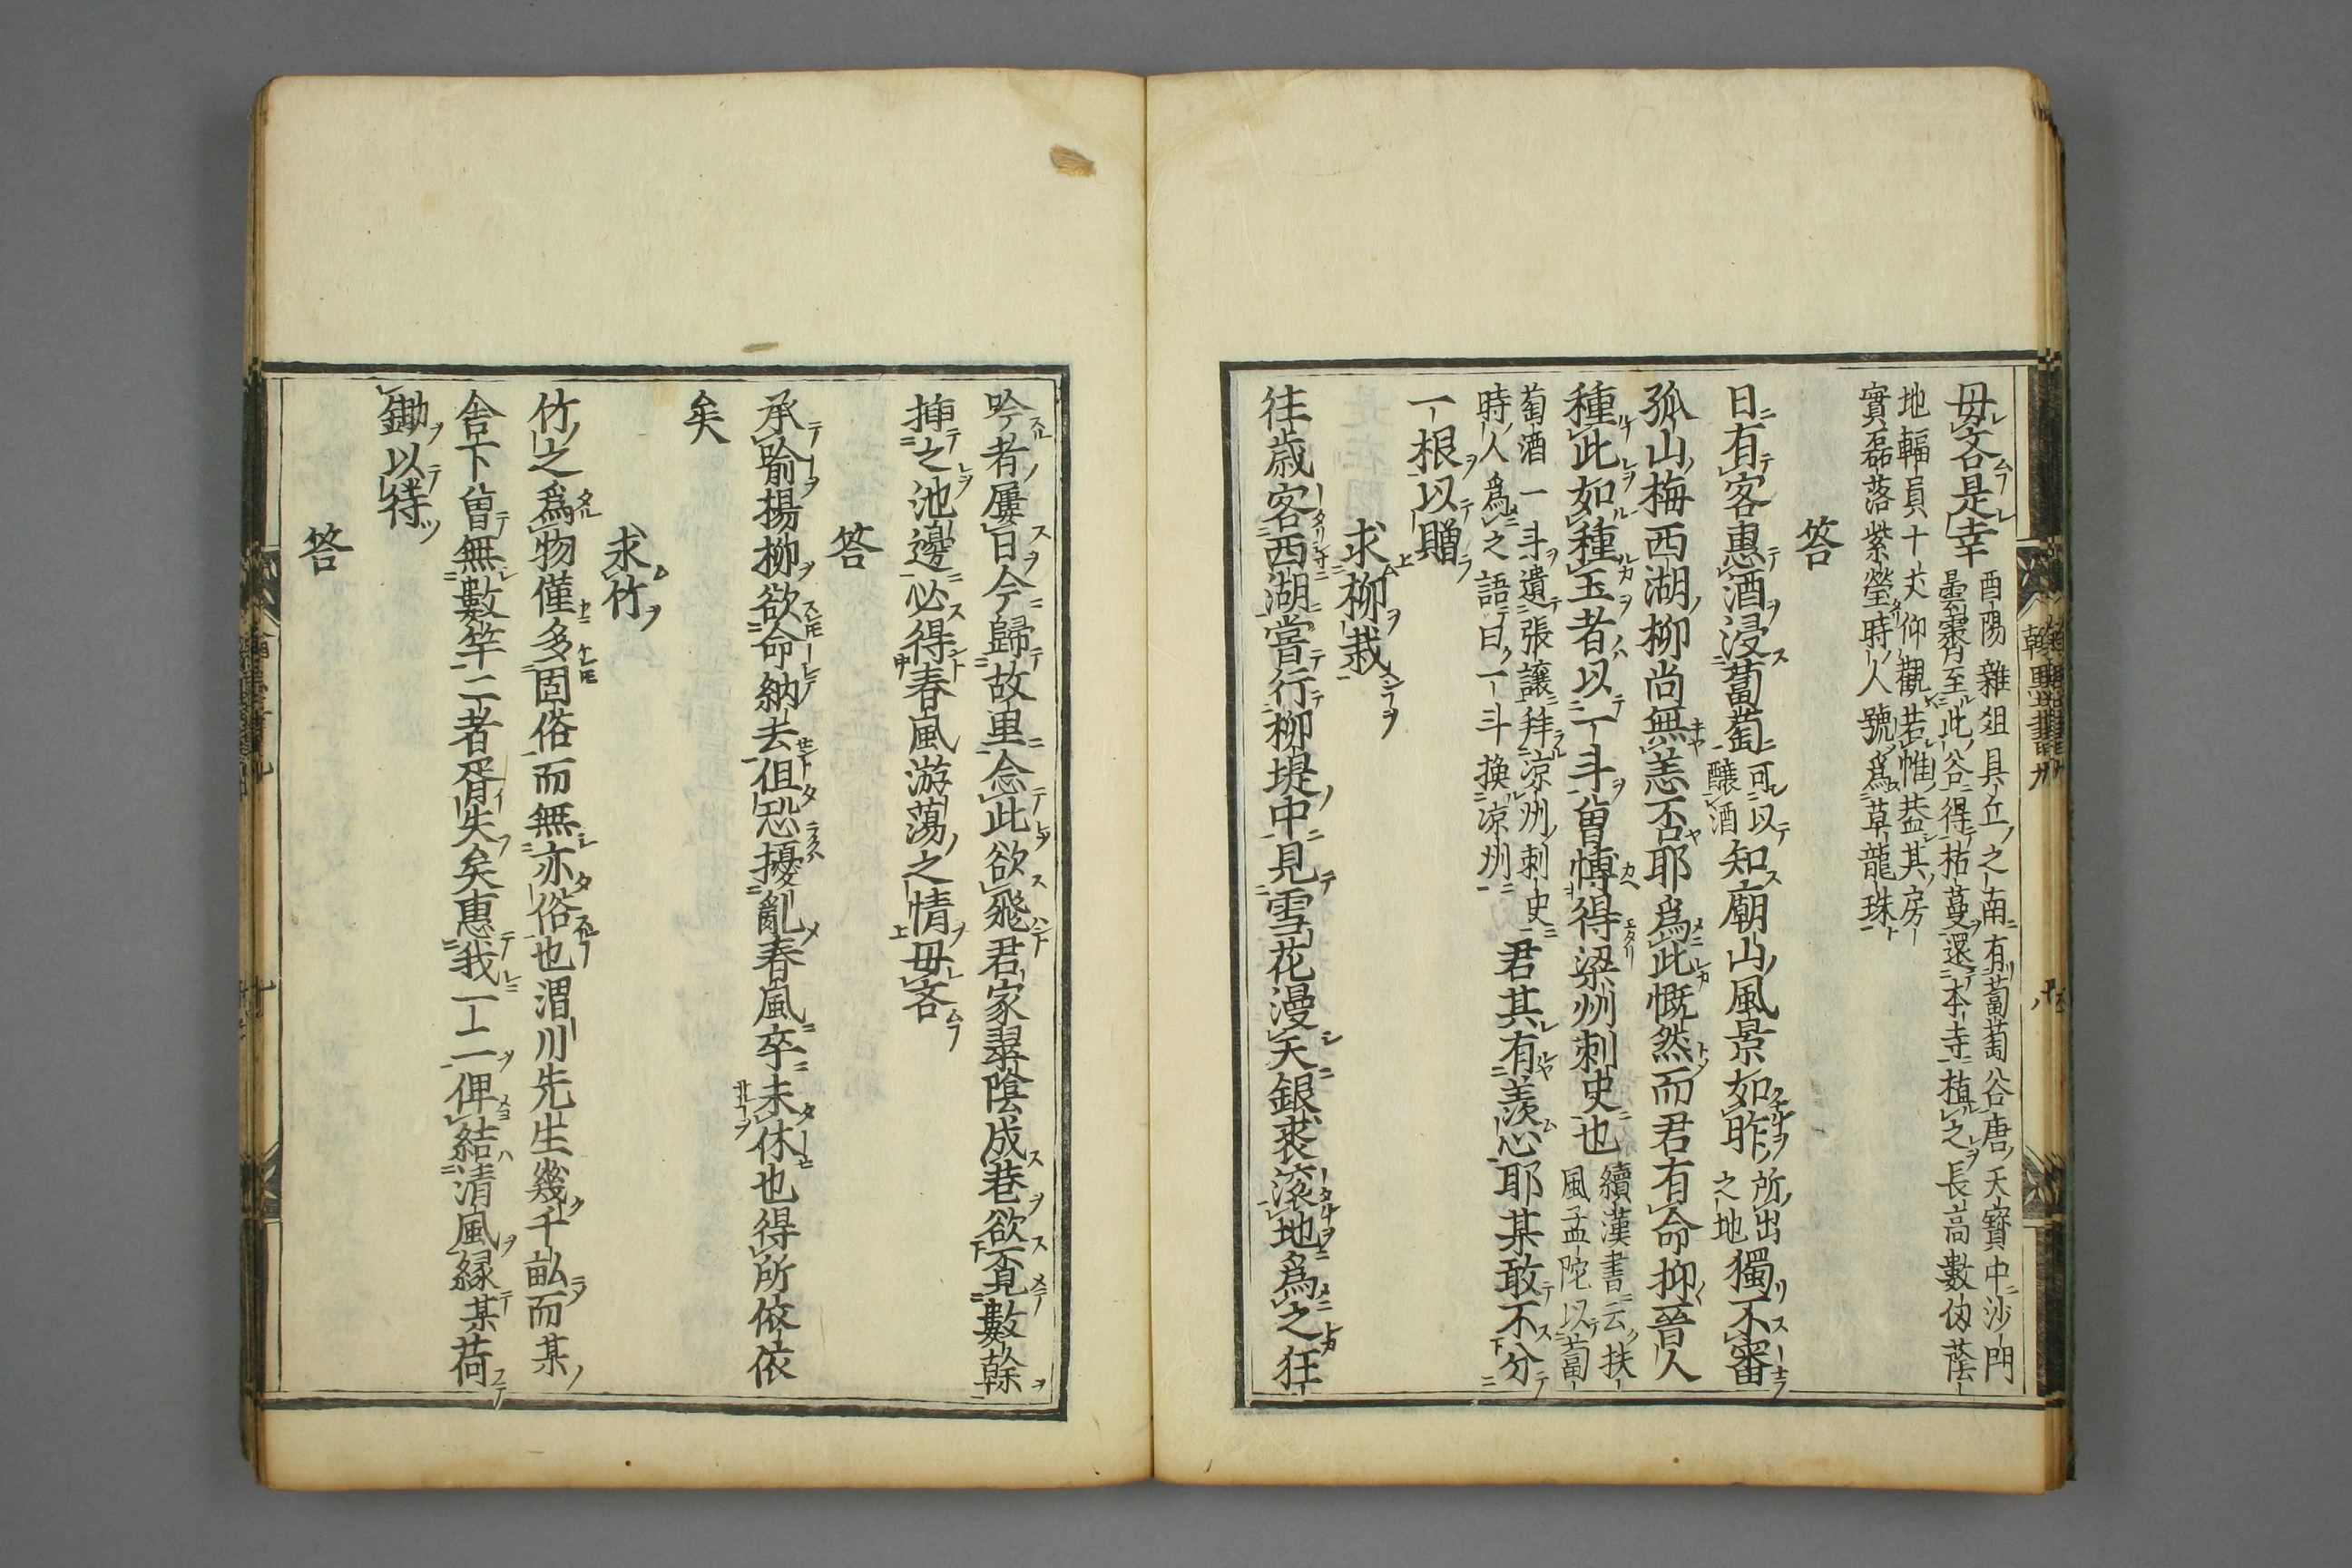 毋吝是幸 酉陽雜俎具丘之南有葡萄谷唐天寶中沙門
曇霄至此谷得枯蔓還本寺植之長高數仞蔭
地輻員十丈仰觀若帷葢其房
實磊落紫瑩時人號爲草龍珠
答
日有客惠酒浸葡萄 可以釀酒 知廟山風景如昨 所出之地 獨不審
孤山梅西湖柳尚無恙否耶爲此慨然而君有命抑晉人
種此如種玉者以一斗曾博得梁州刺史也 續漢書云扶風孟陀以葡
萄酒一斗遺張讓拜涼州刺史
時人爲之語曰一斗換涼州 君其有羨心耶某敢不分
一根以贈
求柳栽
往歳客西湖嘗行柳堤中見雪花漫天銀裘滚地爲之狂
吟者屢日今歸故里念此欲飛君家翠陰成巷欲覔數榦
揷之池邊必得春風游蕩之情毋吝
答
承喻楊柳欲命納去但恐擾亂春風卒未休也得所依依
矣
求竹
竹之爲物僅多固俗而無亦俗也渭川先生幾千畝而某
舍下曾無數竿二者胥失矣惠我一二俾結清風緣某荷
鋤以待
答